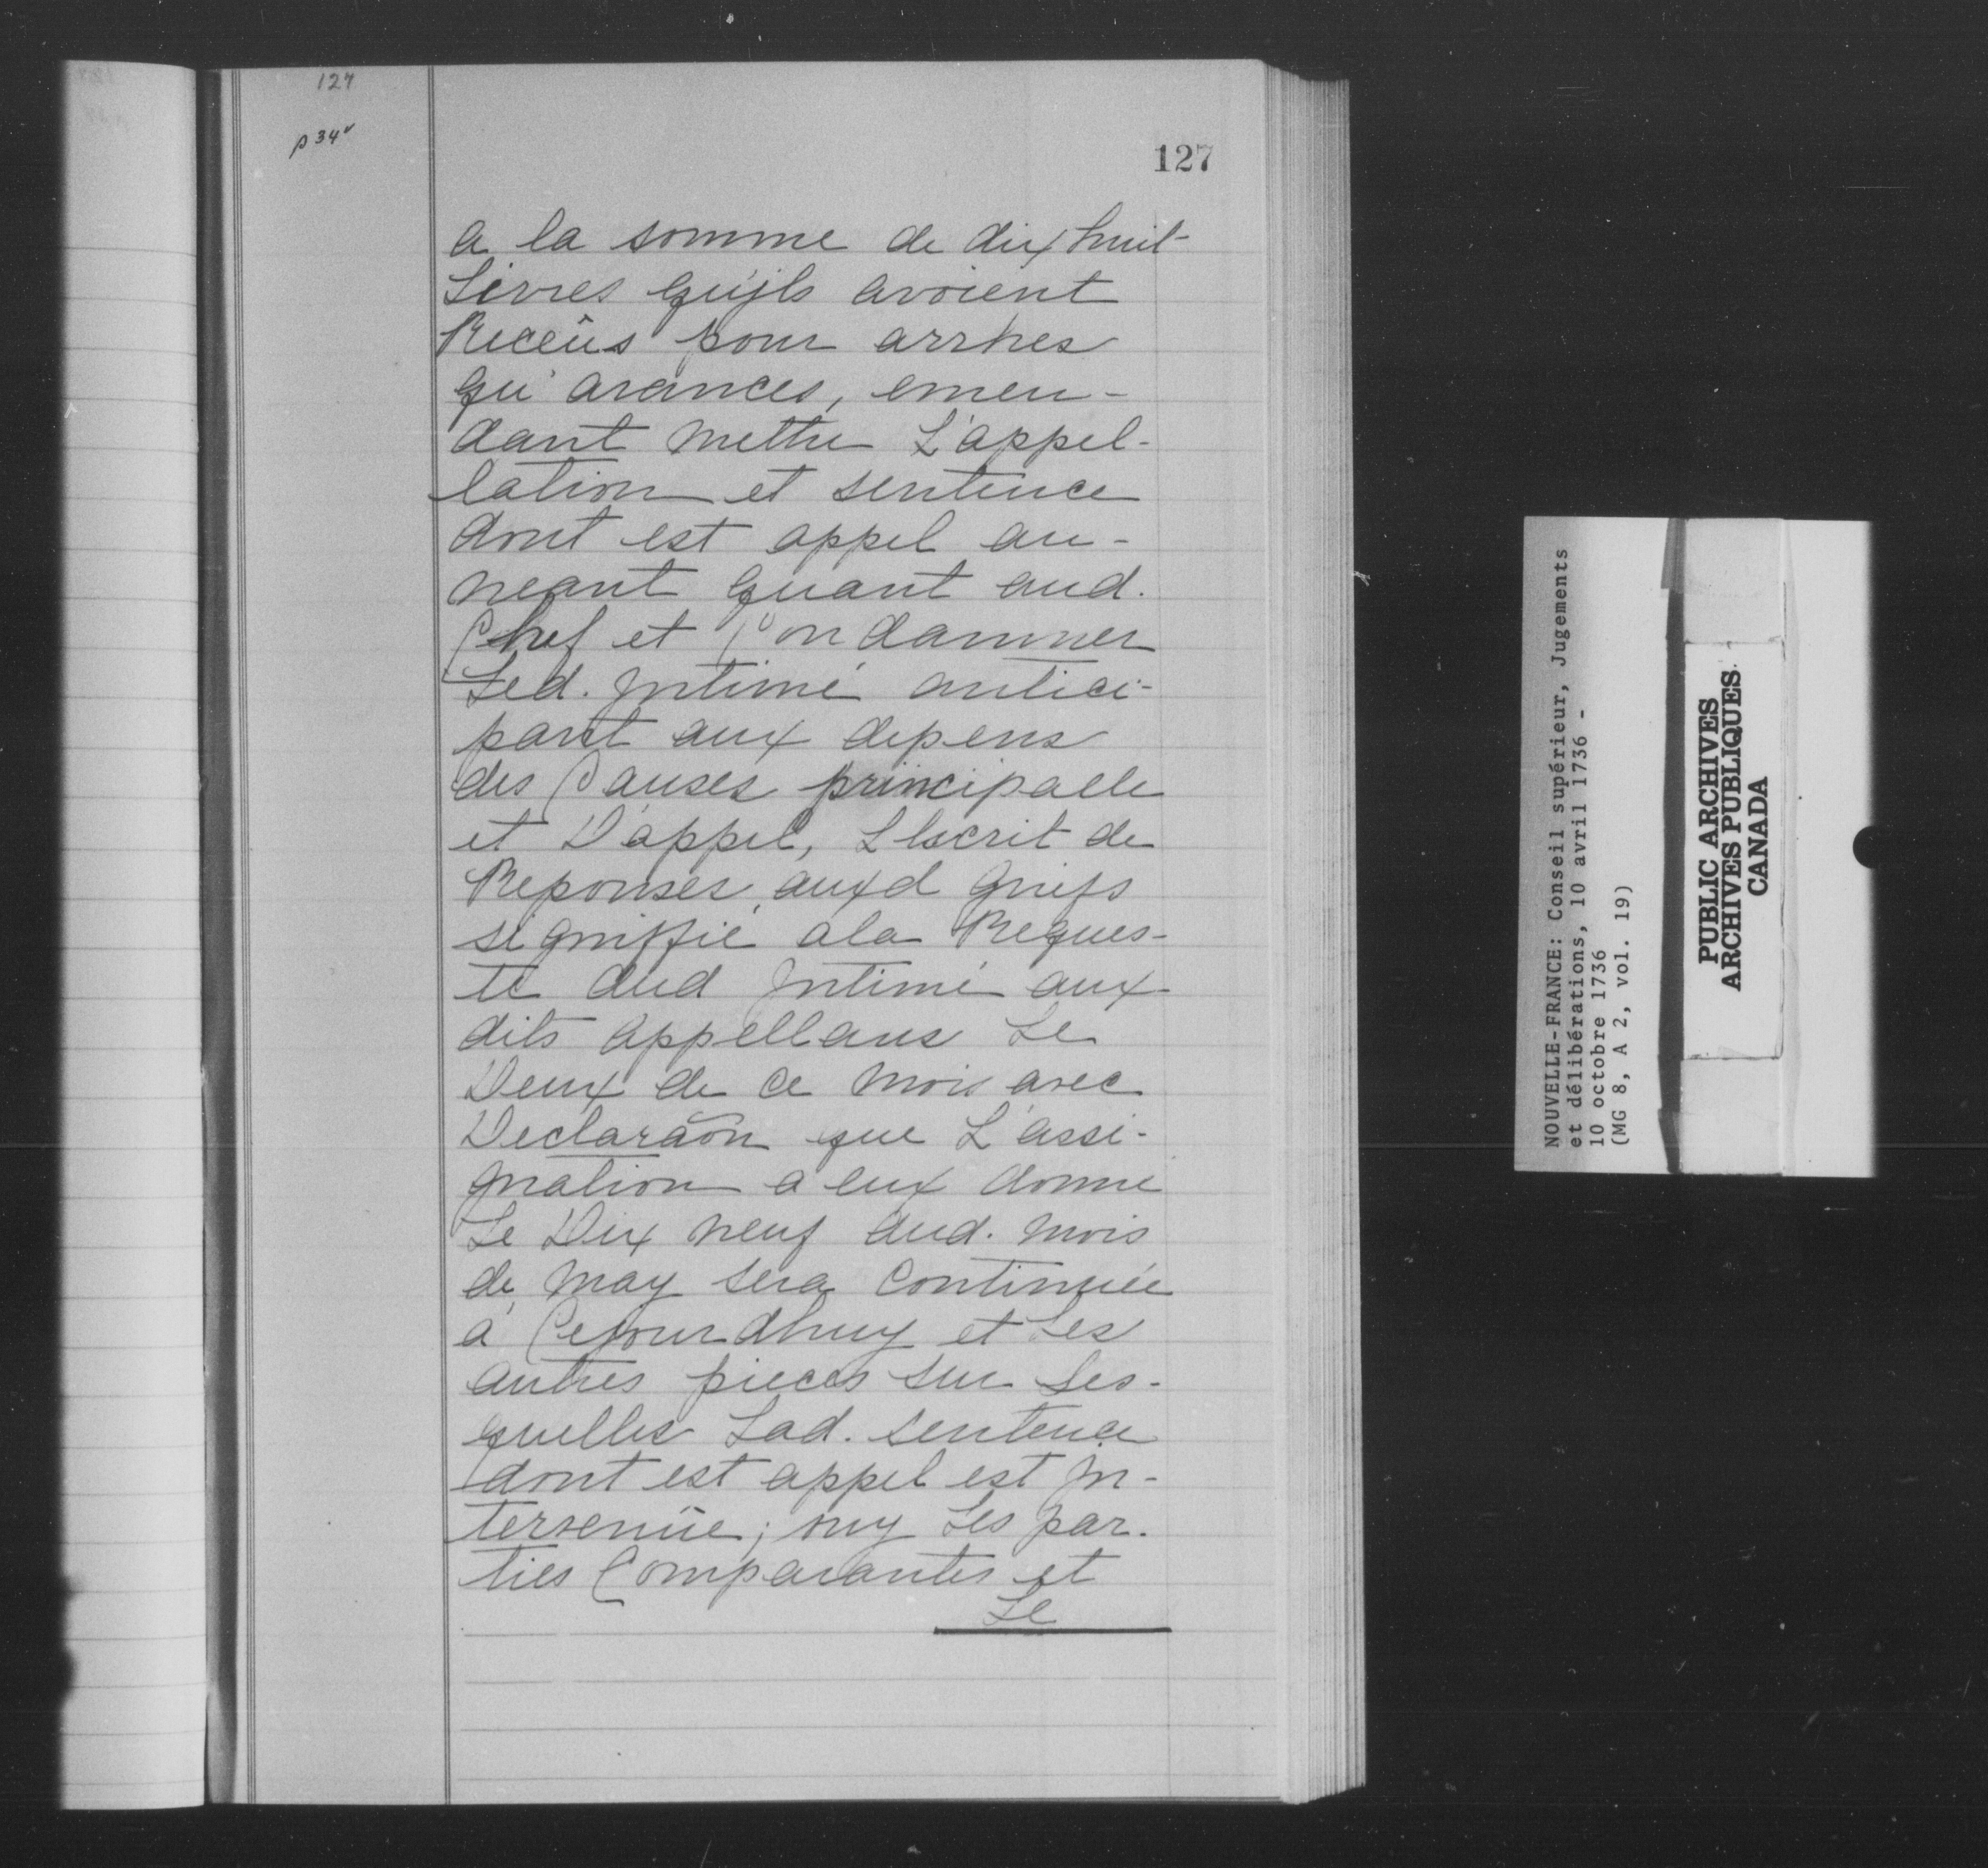 127
p 34v
127
a la somme de dix huit
Livres qu'jls avoient
Receûs pour arrhes
qu'avances, emen-
dant mettre L'appel-
lation et sentence
dont est appel au-
neant quant aud.
Chef et Condamner
Led. jntimé antici-
pant aux depens
des Causes principalle
et D'appel, L'Escrit de
Reponses auxd griefs
signiffié a la Reques-
te dud jntimé aux-
dits appellans Le
Deux de ce mois avec
Declaraõn que L'assi-
gnation a eux donné
Le Dix neuf dud. mois
de may sera Continuée
à Cejourdhuy et Les
autres pieces sur Les-
quelles Lad. sentence
dont est appel est jn-
tervenüe; ouy Les par-
ties Comparantes et
Le
NOUVELLE-FRANCE: Conseil supérieur, Jugements
et délibérations, 10 avril 1736 -
10 octobre 1736
(MG 8, A 2, vol. 19)
PUBLIC ARCHIVES
ARCHIVES PUBLIQUES
CANADA